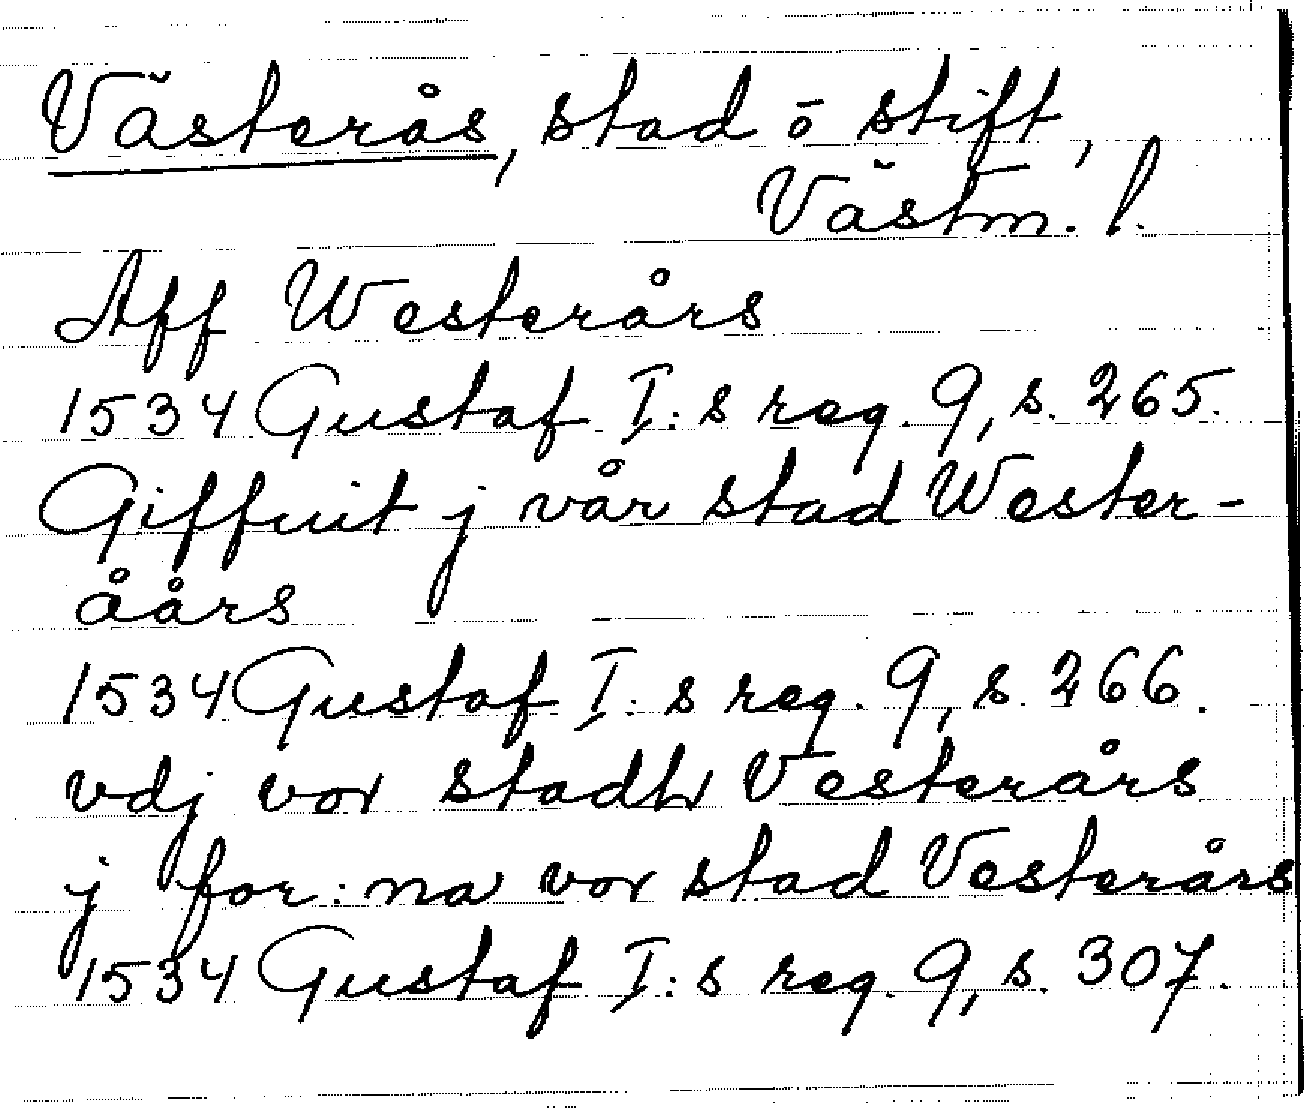 Västerås, stad ō stift,
Västm. l.
Aff Westerårs
1534 Gustaf I:s reg. 9, s. 265.
Giffuit j vår stad Wester-
åårs
1534 Gustaf I:s reg. 9, s. 266.
vdj vor stadh Vesterårs
j for:na vor stad Vesterårs
1534 Gustaf I:s reg. 9, s. 307.